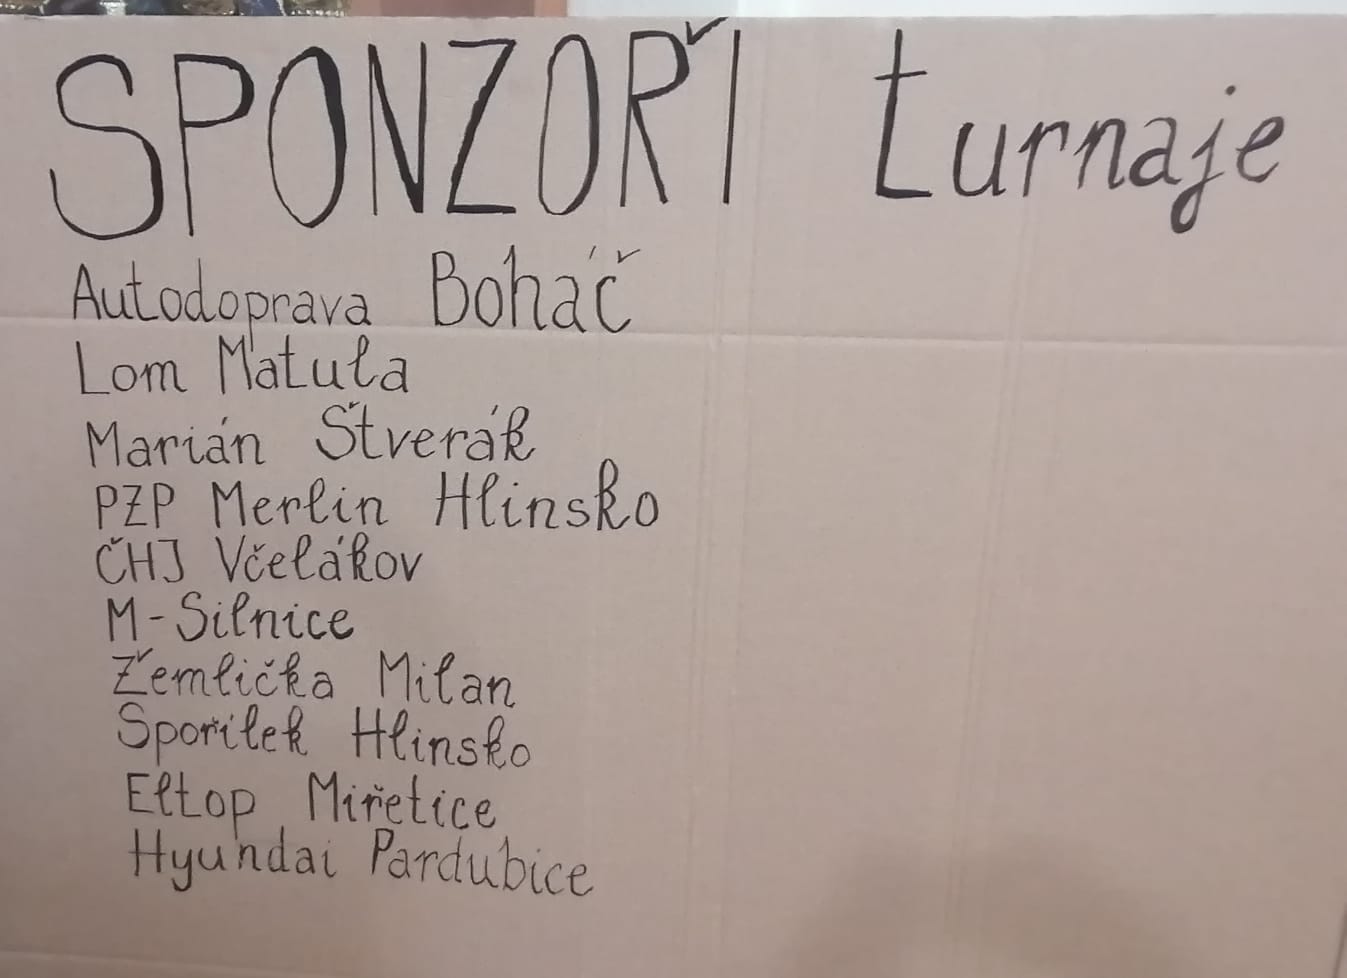 SPONZOŘI turnaje
Autodoprava Boháč
Lom Matula
Marián Štverák
PZP Merlin Hlinsko
ČHJ Včelákov
M-Silnice
Žemlička Milan
Spořílek Hlinsko
Eltop Miřetice
Hyundai Pardubice